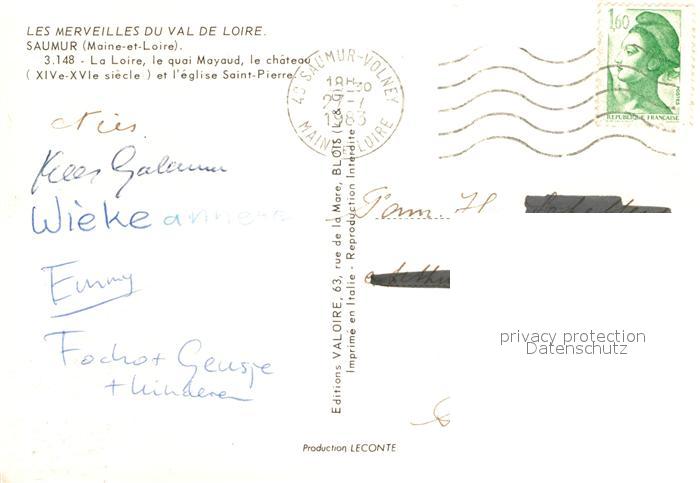 LES MERVEILLES DU VAL DE LOIRE.
SAUMUR (Maine-et-Loire).
3.148 - La Loire, le quai Mayaud, le château
( XIVe-XVIe siècle ) et l'église Saint-Pierre.
49 SAUMUR-VOLNEY
18H30
27-7
1983
MAINE-ET-LOIRE
1,60
POSTES
REPUBLIQUE FRANÇAISE
Kees
Wieke
Emmy
Focko + Geusje
+ kinderen
Editions VALOIRE, 63, rue de la Mare, BLOIS (L.&
Imprimé en Italie - Reproduction Interdite
Fam. H.
privacy protection
Datenschutz
Production LECONTE